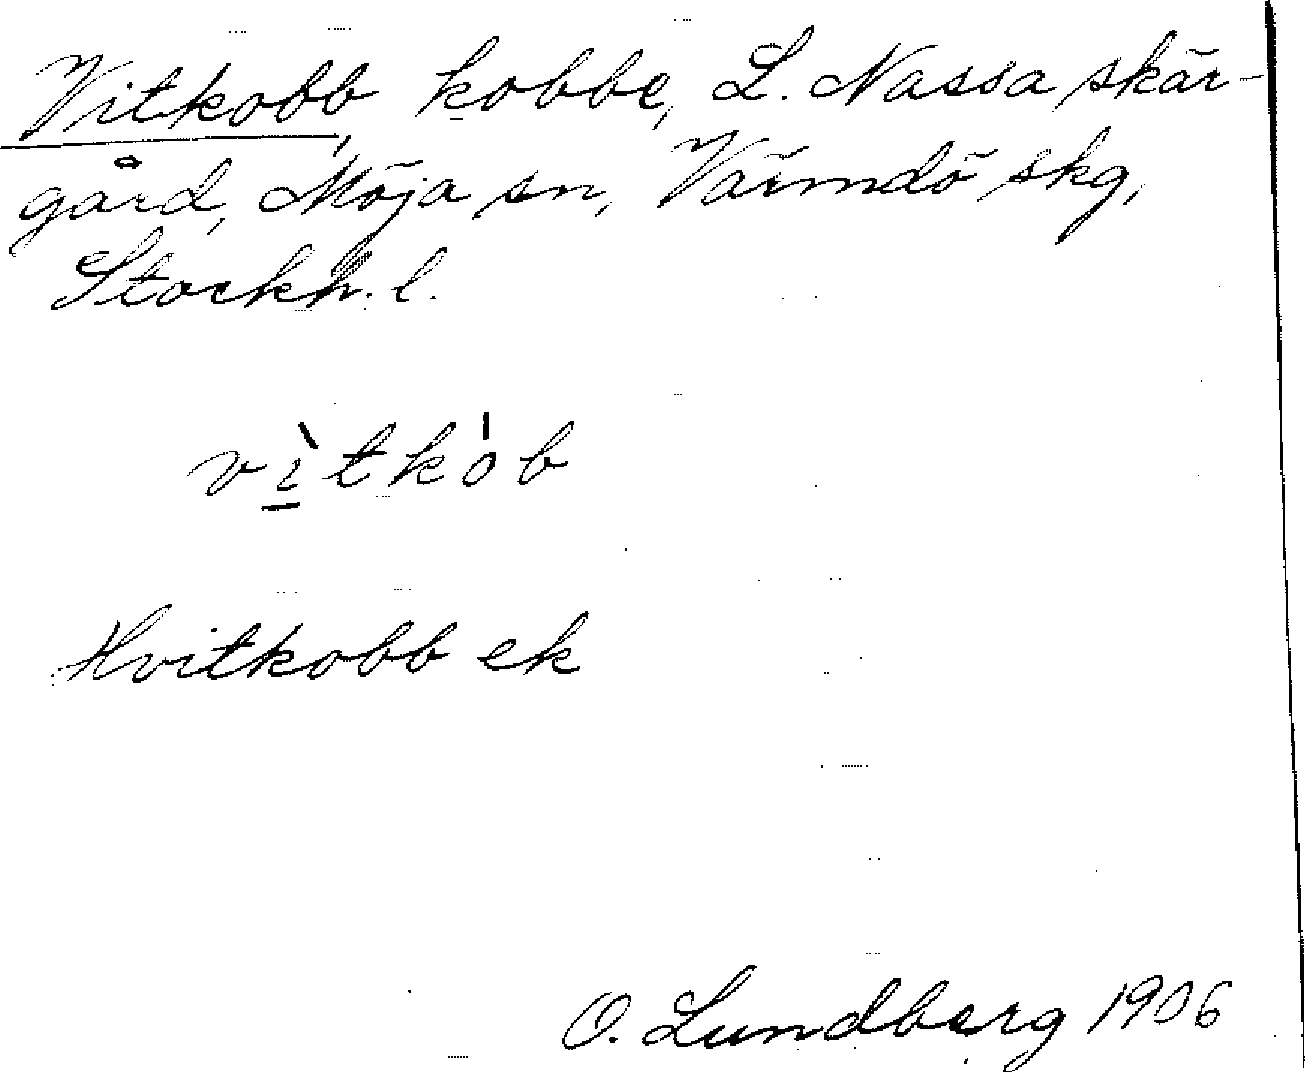 Vitkobb, kobbe, L. Nassa skär-
gård, Möja sn, Värmdö skg,
Stockh. l.
vı̱̀tkób
Hvitkobb ek
O. Lundberg 1906